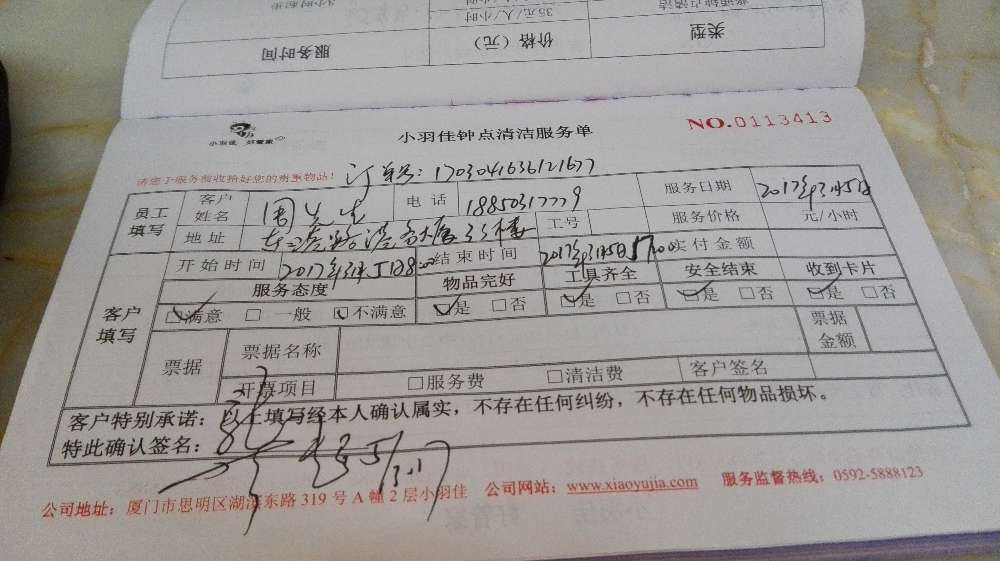 服务时间 价格（元） 类型
35元/人/小时
小羽佳 好管家
小羽佳钟点清洁服务单
NO.0113413
请您于服务前收拾好您的贵重物品!
订单号: 1703041636121677
员工填写
客户姓名 周先生 电话 18850317779 服务日期 2017年3月5日
地址 工号 服务价格 元/小时
客户填写
开始时间 2017年3月5日8:00 结束时间 2017年3月5日17:00 实付金额
服务态度 物品完好 工具齐全 安全结束 收到卡片
☑满意 □一般 ☑不满意 ☑是 □否 ☑是 □否 ☑是 □否 ☑是 □否
票据 票据名称 票据金额
开票项目 □服务费 □清洁费 客户签名
客户特别承诺：以上填写经本人确认属实，不存在任何纠纷，不存在任何物品损坏。
特此确认签名：
公司地址：厦门市思明区湖滨东路 319 号 A 幢 2 层小羽佳 公司网站：www.xiaoyujia.com 服务监督热线：0592-5888123